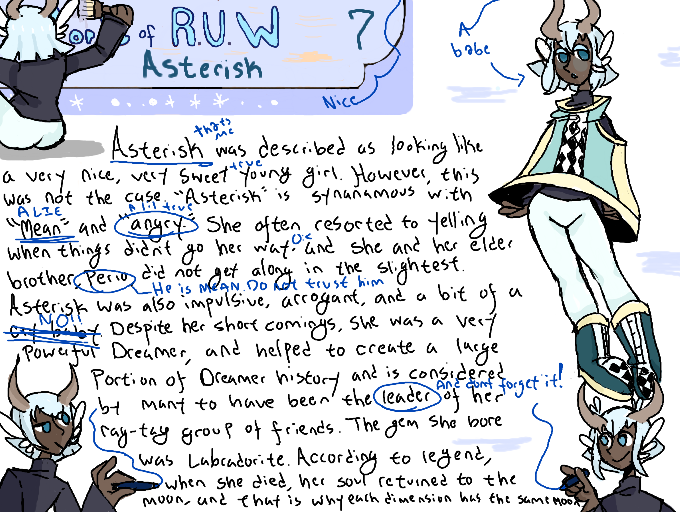 of R.U.W 7
Asterisk
Nice
A babe
thats me
Asterisk was described as looking like
true
a very nice, very sweet young girl. However, this
was not the case. "Asterisk" is synanamous with
A LIE
a lil true
"Mean" and "angry". She often resorted to yelling
when things didn't go her way, and she and her elder
brother, Perio did not get along in the slightest.
He is MEAN. Do not trust him
Asterisk was also impulsive, arrogant, and a bit of a
NO!!
Despite her short comings, she was a very
Powerful Dreamer, and helped to create a large
Portion of Dreamer history and is considered
And dont forget it!
by many to have been the leader of her
rag-tag group of friends. The gem she bore
was Labradorite. According to legend,
when she died, her soul returned to the
moon, and that is why each dimension has the same moon